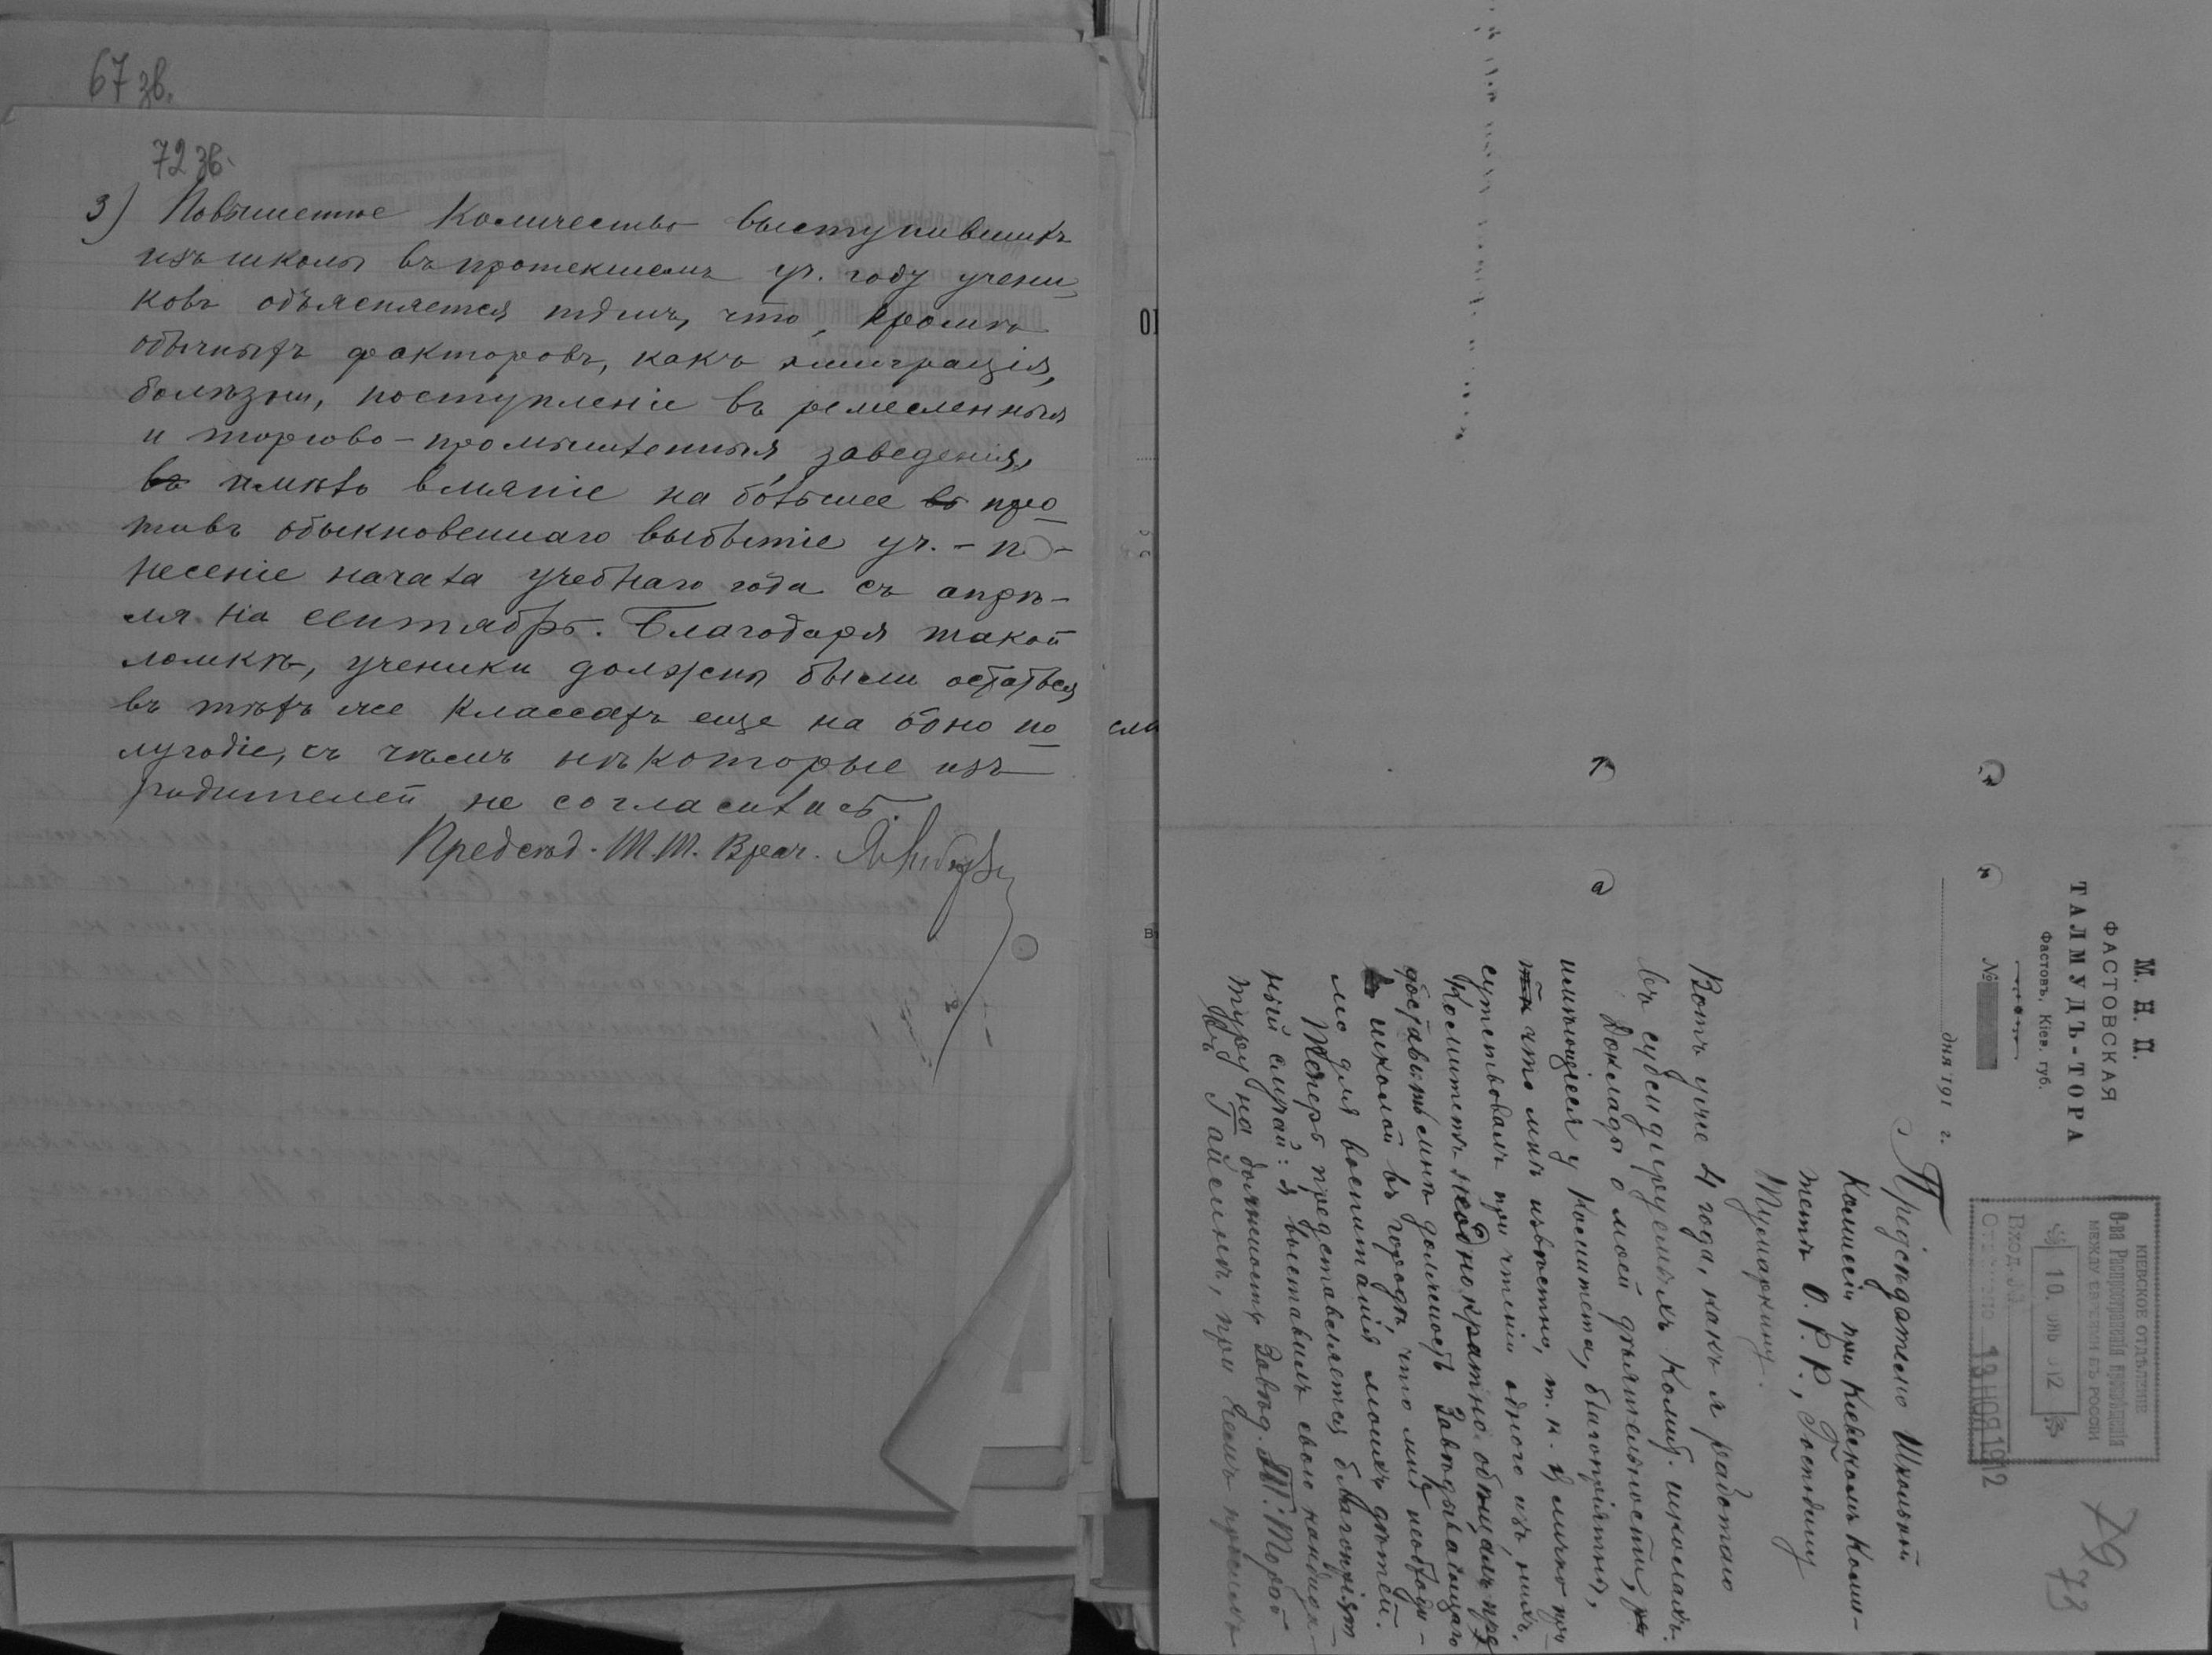 67 зв.
72 зв.
3) Повышенное количество выступившихъ
изъ школы въ протекшемъ уч. году учени
ковъ объясняется тѣмъ, что, кромѣ
обычныхъ факторовъ, какъ эмиграція,
болѣзни, поступленіе въ ремесленныя
и торгово-промышленныя заведенія,
имѣло вліяніе на бо́льшее про
тивъ обыкновеннаго выбытіе уч. - пе-
несеніе начала учебнаго года съ апрѣ-
ля на сентябрь. Благодаря такой
ломкѣ, ученики должны были остаться
въ тѣхъ же классахъ еще на одно по
лугодіе, съ чѣмъ нѣкоторые изъ
родителей не согласились.
Предсѣд. Т.Т. Врач.
М. Н. П.
ФАСТОВСКАЯ
ТАЛМУДЪ-ТОРА
Фастовъ, Кіев. губ.
№
дня 191 г.
КІЕВСКОЕ ОТДѢЛЕНІЕ
О-ва Распространенія просвѣщенія
МЕЖДУ ЕВРЕЯМИ ВЪ РОССІИ
Вход. №
13 НОЯ 1912
73
Предсѣдателю Школьной
Комиссіи при Кіевскомъ Коми-
тетѣ О. Р. Р., Господину
Тумаркину.
Вотъ уже 4 года, какъ я работаю
въ субсидируемыхъ Комит. школахъ.
Доклады о моей дѣятельности,
имѣющіеся у Комитета, благопріятны,
что мнѣ извѣстно, т. к. я лично при
сутствовалъ при чтеніи одного изъ нихъ.
Комитетъ неоднократно обѣщалъ пре
доставить мнѣ должность Завѣдывающаго
школой въ городѣ, что мнѣ необходи-
мо для воспитанія моихъ дѣтей.
Теперь представляется благопріят
ный случай: я выставилъ свою кандида-
туру на должность Завѣд. Т. Торой
въ Гайсинѣ, при чемъ